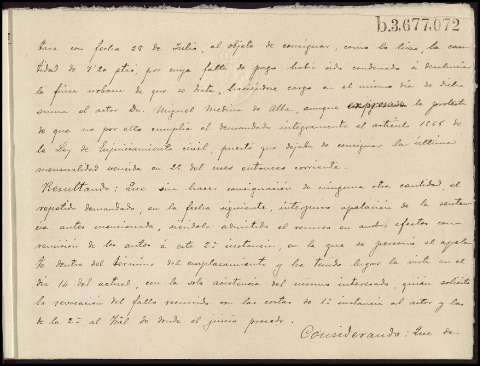 b.3.677.072
con fecha 28 de Julio, al objeto de consignar, como lo hizo, la can-
tidad de 720 ptas, por cuya falta de pago había sido condenado á desalojar
la finca urbana de que se trata, haciéndose cargo en el mismo día de dicha
suma el actor Dn. Miguel Medina de Alba, aunque expresada la protesta
de que no por ello cumplia el demandado integramente el artículo 1566 de
la Ley de Enjuiciamiento civil, puesto que dejaba de consignar la última
mensualidad vencida en 25 del mes entonces corriente.
Resultando: Que sin hacer consignación de ninguna otra cantidad, el
repetido demandado, en la fecha siguiente, interpuso apelación de la senten-
cia antes mencionada, siéndole admitido el recurso en ambos efectos con
remisión de los autos á esta 2ª instancia, en la que se personó el apelan-
te dentro del término del emplazamiento y ha tenido lugar la vista en el
día 14 del actual, con la sola asistencia del mismo interesado, quién solicitó
la revocación del fallo recurrido con las costas de 1ª instancia al actor y las
de la 2ª al de donde el juicio procede.
Considerando: Que de-